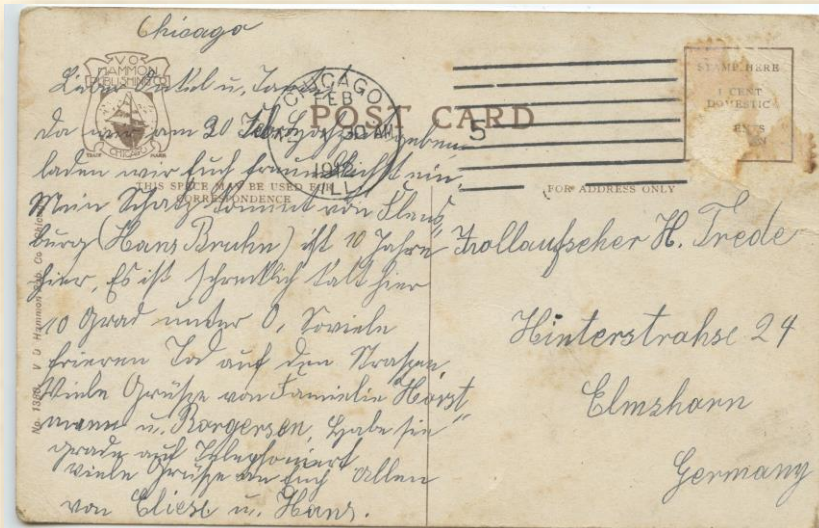 Chicago
V.O. HAMMON
PUBLISHING CO.
CHICAGO
TRADE MARK
CHICAGO
FEB
5
30 AM
1912
ILL
POST CARD
STAMP HERE
1 CENT
DOMESTIC
THIS SPACE MAY BE USED FOR
CORRESPONDENCE
FOR ADDRESS ONLY
No. 1380 V O Hammon Pub. Co., Chicago
Lieber Onkel u. Tante
Da wir am 20 Feb. Hochzeit geben
laden wir Euch freundlichst ein.
Mein Schatz kommt von Flens"
burg (Hans Bruhn) ist 10 Jahre
hier, Es ist schrecklich kalt hier
10 Grad unter 0, Soviele
frieren Tod auf den Straßen
Viele Grüße von Familie Horst"
mann u. Rorgersen, Habe sie
grade auf Telephoniert
viele Grüße an Euch Allen
von Eliese u. Hans.
Zollaufseher H. Trede
Hinterstrahse 24
Elmshorn
Germany